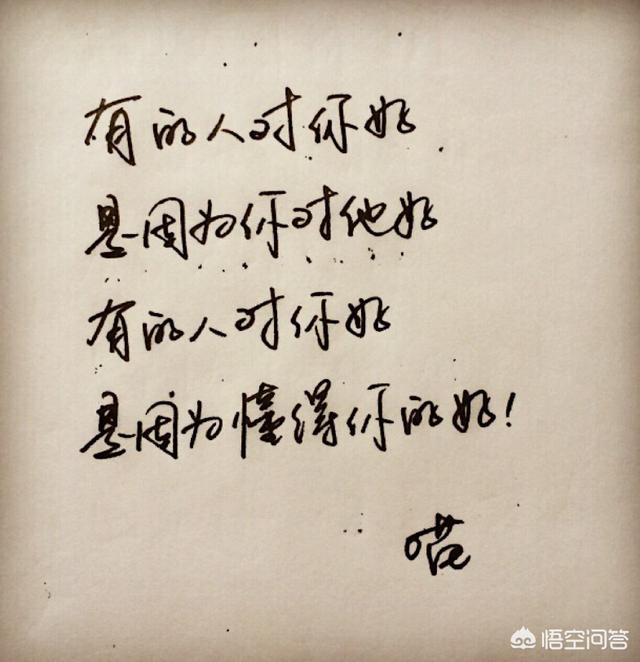 有的人对你好
是因为你对他好
有的人对你好
是因为懂得你的好!
悟空问答